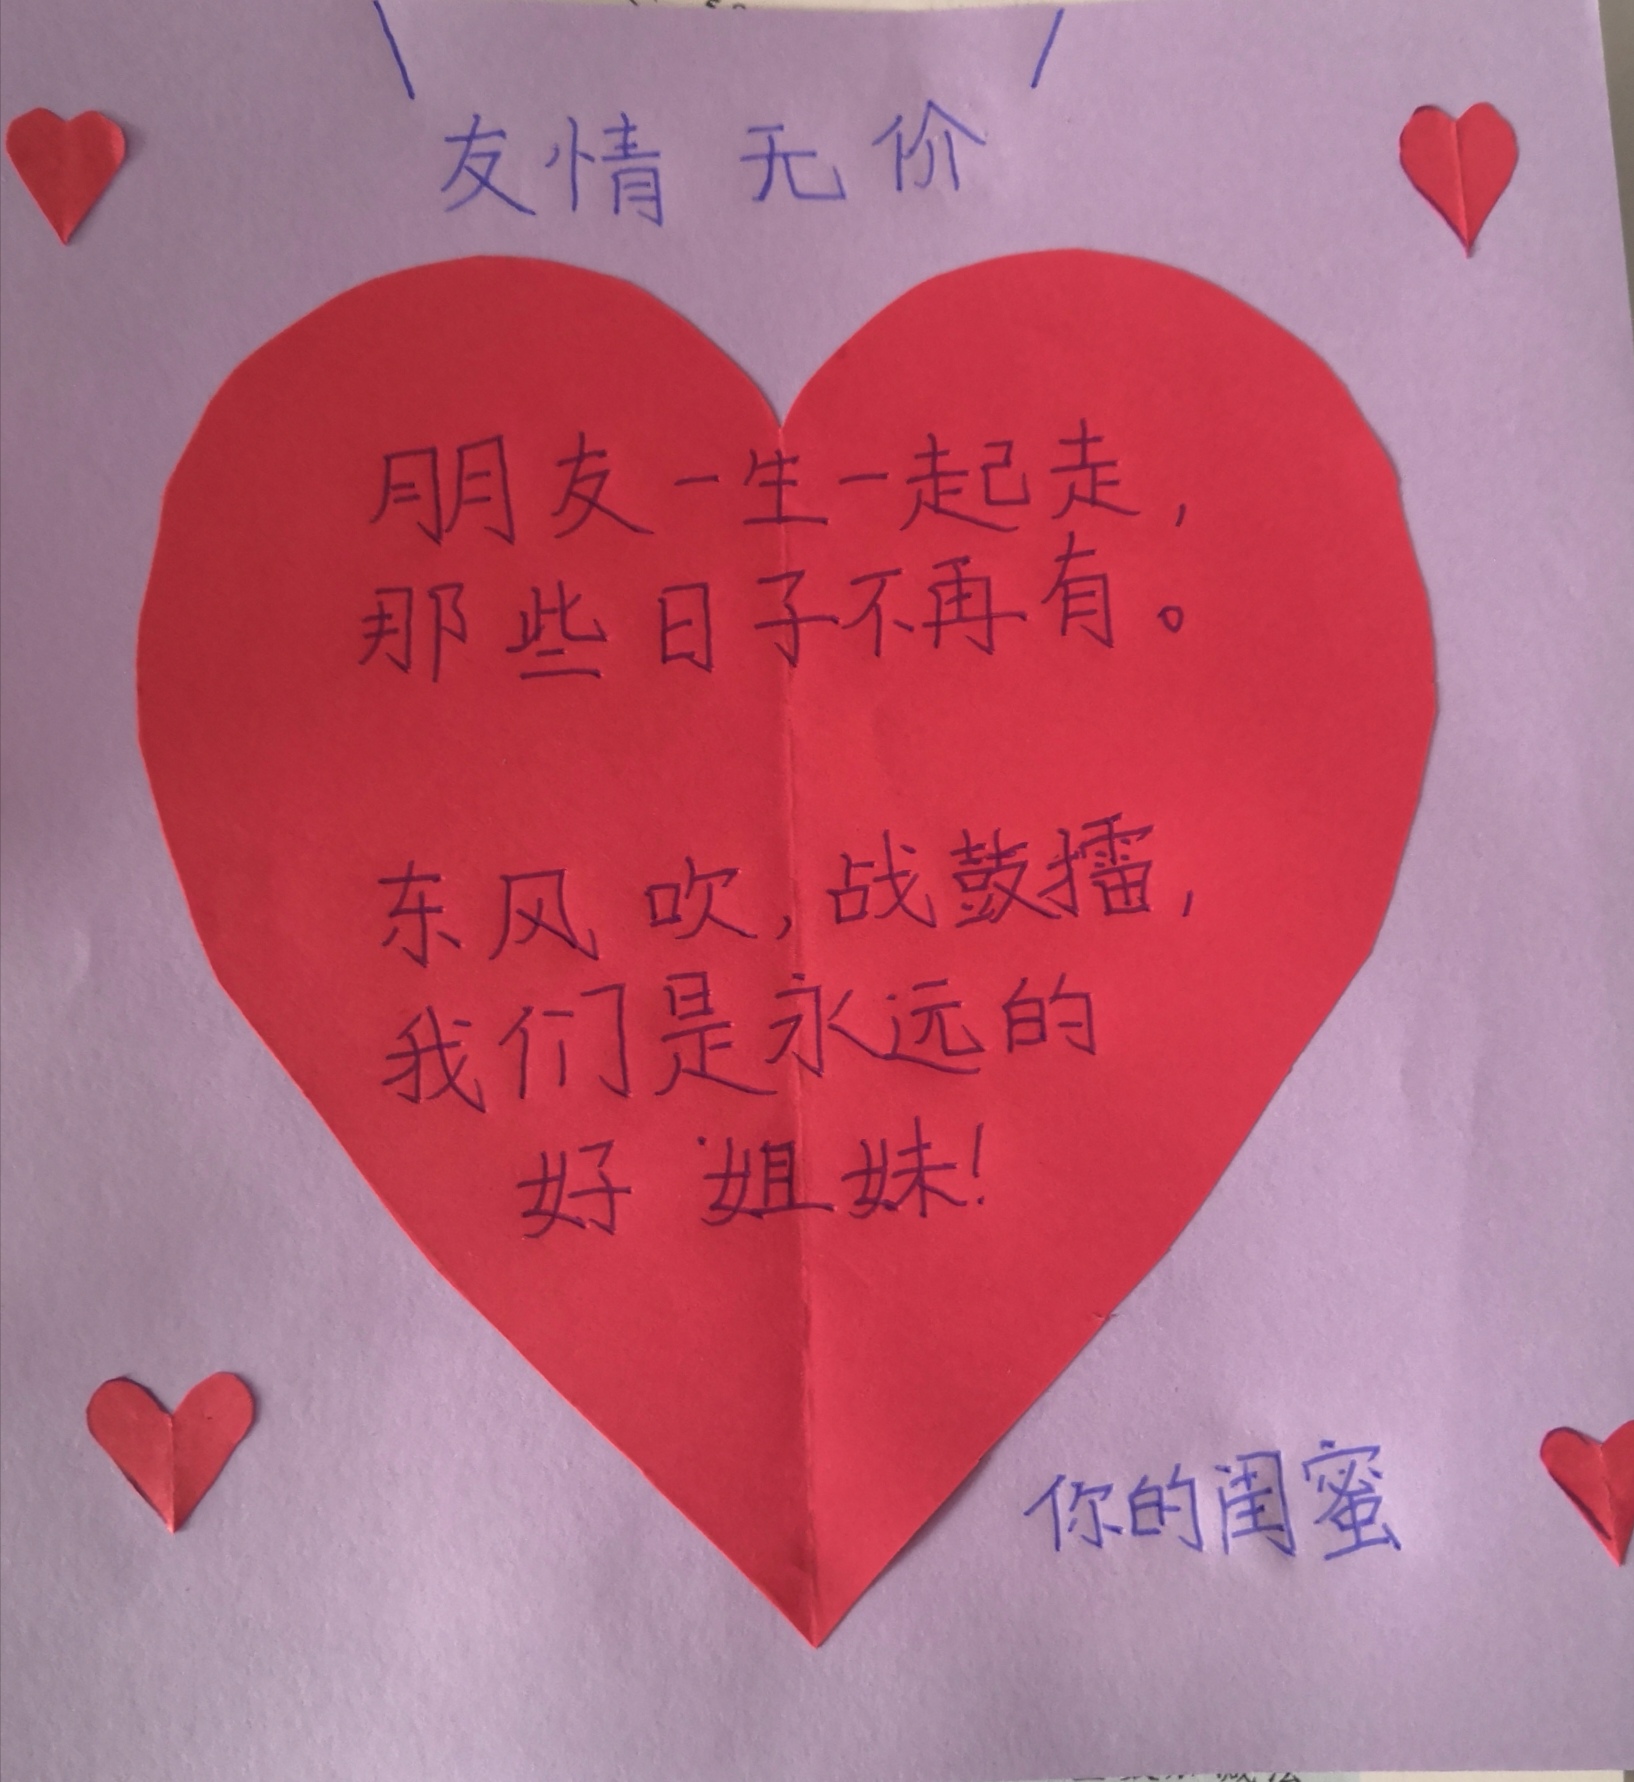 友情无价
朋友一生一起走,
那些日子不再有。
东风吹,战鼓擂,
我们是永远的
好姐妹!
你的闺蜜